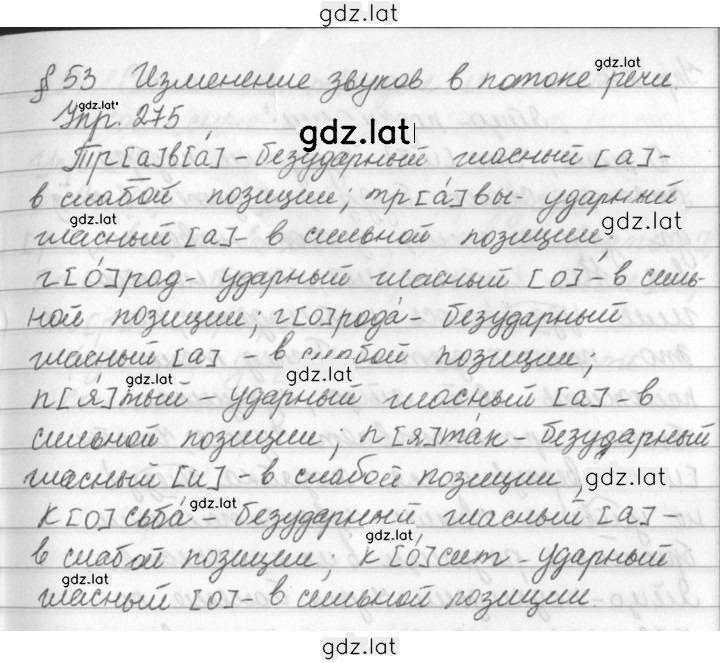 gdz.lat
§ 53 Изменение звуков в потоке речи.
gdz.lat
gdz.lat
Упр. 275
gdz.lat
Тр[а]в[а́] - безударный гласный [а] -
в слабой позиции; тр[а́]вы - ударный
gdz.lat
gdz.lat
гласный [а] - в сильной позиции;
г[о́]род - ударный гласный [о] - в силь-
ной позиции; г[о]рода́ - безударный
гласный [а] - в слабой позиции;
gdz.lat
gdz.lat
п[я́]тый - ударный гласный [а] - в
сильной позиции; п[я]та́к - безударный
гласный [и] - в слабой позиции
gdz.lat
gdz.lat
к[о]сьба́ - безударный гласный [а] -
gdz.lat
в слабой позиции; к[о́]сит - ударный
gdz.lat
гласный [о] - в сильной позиции.
gdz.lat